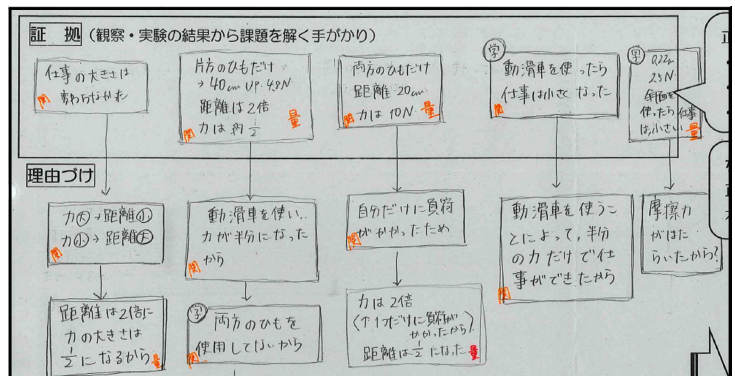 証 拠 (観察・実験の結果から課題を解く手がかり)
仕事の大きさは
変わらなかった
関
片方のひもだけ
→40cm UP・4.9N
距離は2倍
力は約1/2
関
量
両方のひもだけ
距離・20cm
力は10N
関
量
学
動滑車を使ったら
仕事は小さくなった
関
学
0.22m
2.5N
斜面を
使ったら仕事
は小さい
関
量
理由づけ
力大→距離小
力小→距離大
関
動滑車を使い、
力が半分になった
から
関
自分だけに負荷
がかかったため
関
動滑車を使うこ
とによって、半分
の力だけで仕
事ができたから
関
摩擦力
がはた
らいたから?
距離は2倍に
力の大きさは
1/2になるから
量
学
両方のひもを
使用してないから
関
力は2倍
(↑1つだけに負荷が
かかったから)
距離は1/2になった
量